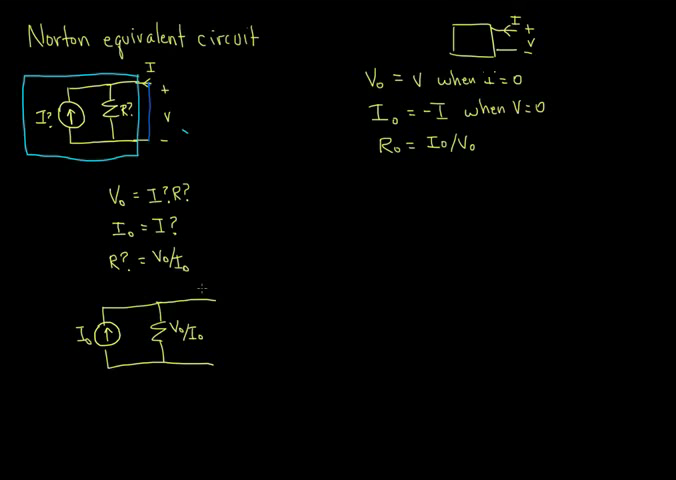 Norton equivalent circuit
I
+
I?
R?
V
-
V₀ = I?R?
I₀ = I?
R? = V₀/I₀
I₀
V₀/I₀
I
+
V
-
V₀ = V when i=0
I₀ = -I when V=0
R₀ = I₀/V₀